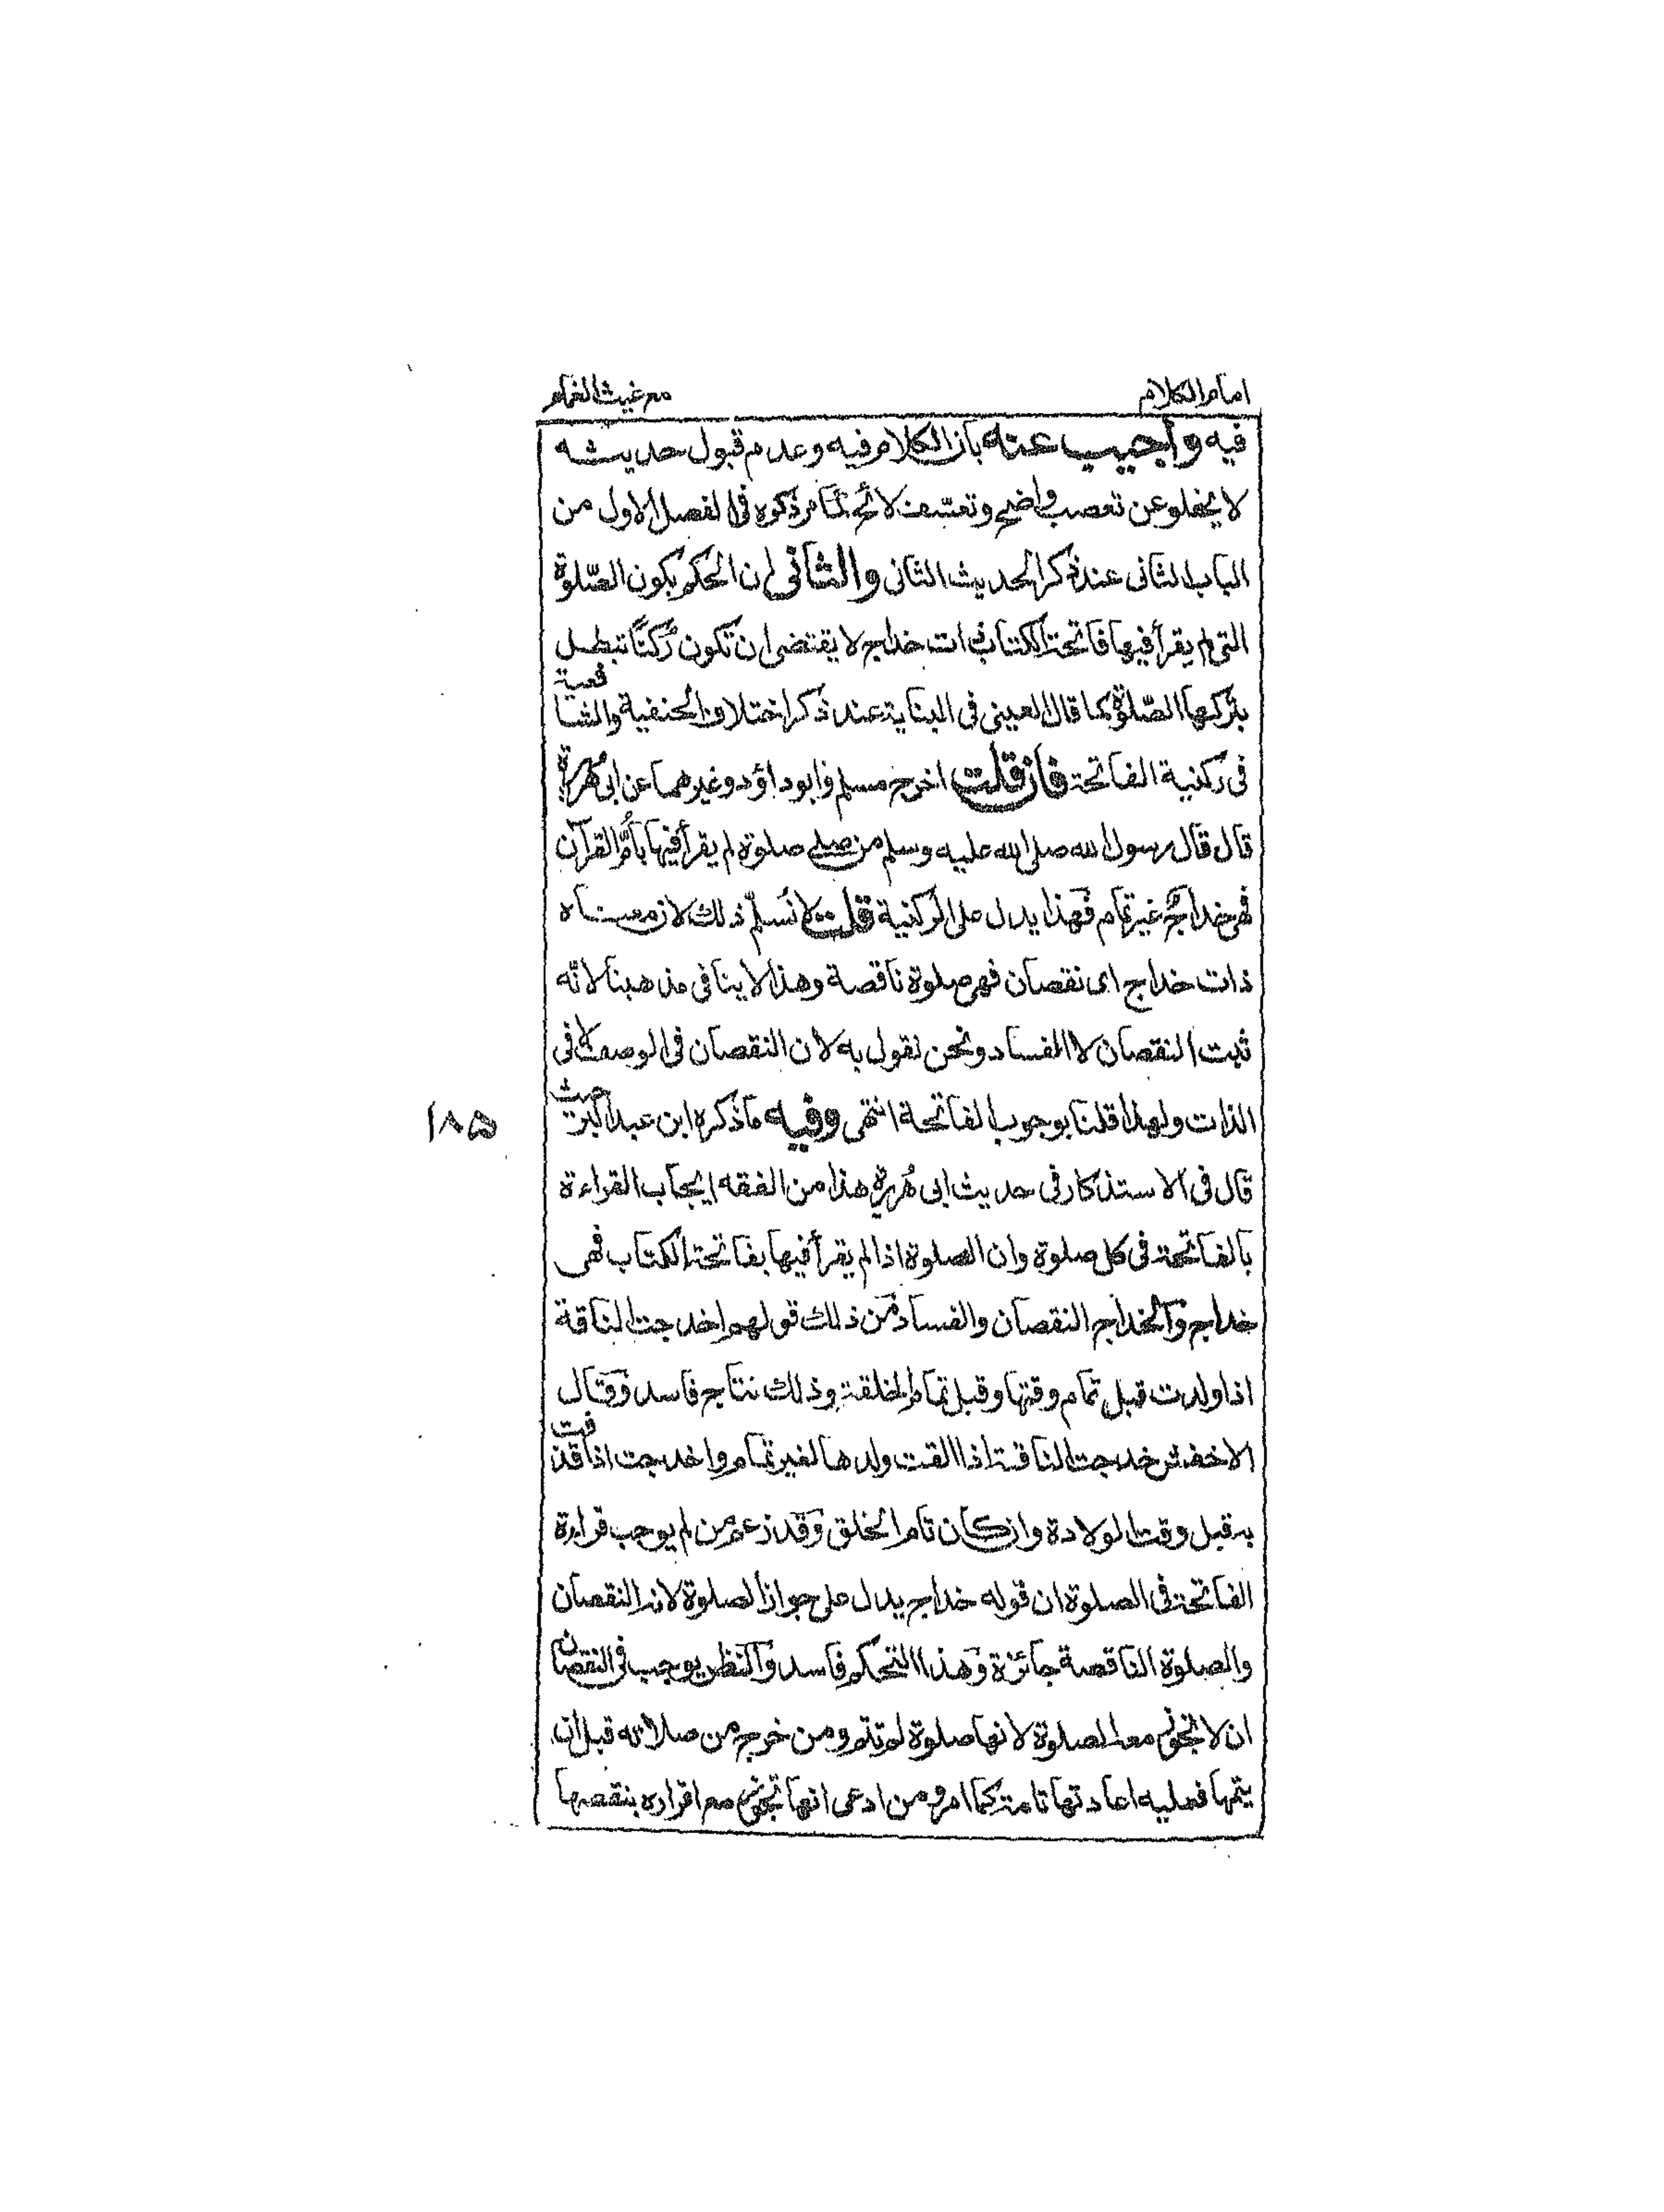 امام الكلام
مع غيث الغمام
فيه وأجيب عنه بان الكلام فيه وعدم قبول حديثه
لا يخلو عن تعصب واضح وتعسّف لائح كما مر ذكره فى الفصل الاول من
الباب الثانى عند ذكر الحديث الثانى والثانى ان الحكم بكون الصّلوة
التى لم يقرأ فيها فاتحة الكتاب ذات خداج لا يقتضى ان تكون ركنًا تبطل
بتركها الصّلوة كما قال العينى فى البناية عند ذكر اختلاف الحنفية والشافعية
فى ركنية الفاتحة فان قلت اخرج مسلم وابو داؤد وغيرهما عن ابى هريرة
قال قال رسول الله صلى الله عليه وسلم من صلى صلوة لم يقرأ فيها بأمّ القرآن
فهى خداج غير تمام فهذا يدل على الركنية قلت لا نُسلّم ذلك لان معناه
ذات خداج اى نقصان فهى صلوة ناقصة وهذا لا ينافى مذهبنا لانّه
ثبت النقصان لا الفساد ونحن نقول به لان النقصان فى الوصف لا فى
الذات ولهذا قلنا بوجوب الفاتحة انتهى وفيه ما ذكره ابن عبد البر حيث
۱۸۵
قال فى الاستذكار فى حديث ابى هُريرة هذا من الفقه ايجاب القراءة
بالفاتحة فى كل صلوة وان الصلوة اذا لم يقرأ فيها بفاتحة الكتاب فهى
خداج والخداج النقصان والفساد من ذلك قولهم اخدجت الناقة
اذا ولدت قبل تمام وقتها وقبل تمام الخلقة وذلك نتاج فاسد وقال
الاخفش خدجت الناقة اذا القت ولدها لغير تمام واخدجت اذا قذفت
به قبل وقت الولادة وان كان تام الخلق وقد زعم من لم يوجب قراءة
الفاتحة فى الصلوة ان قوله خداج يدل على جواز الصلوة لانه النقصان
والصلوة الناقصة جائزة وهذا التحكم فاسد والنظر يوجب فى النقصان
ان لا تجوز معه الصلوة لانها صلوة لم تتم ومن خرج من صلاته قبل ان
يتمها فعليه اعادتها تامة كما امر ومن ادعى انها تجوز مع اقراره بنقصها